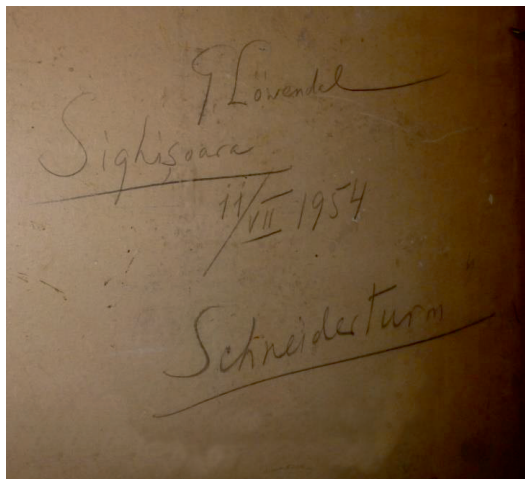 G Löwendal
Sighişoara
11/VII 1954
Schneiderturm